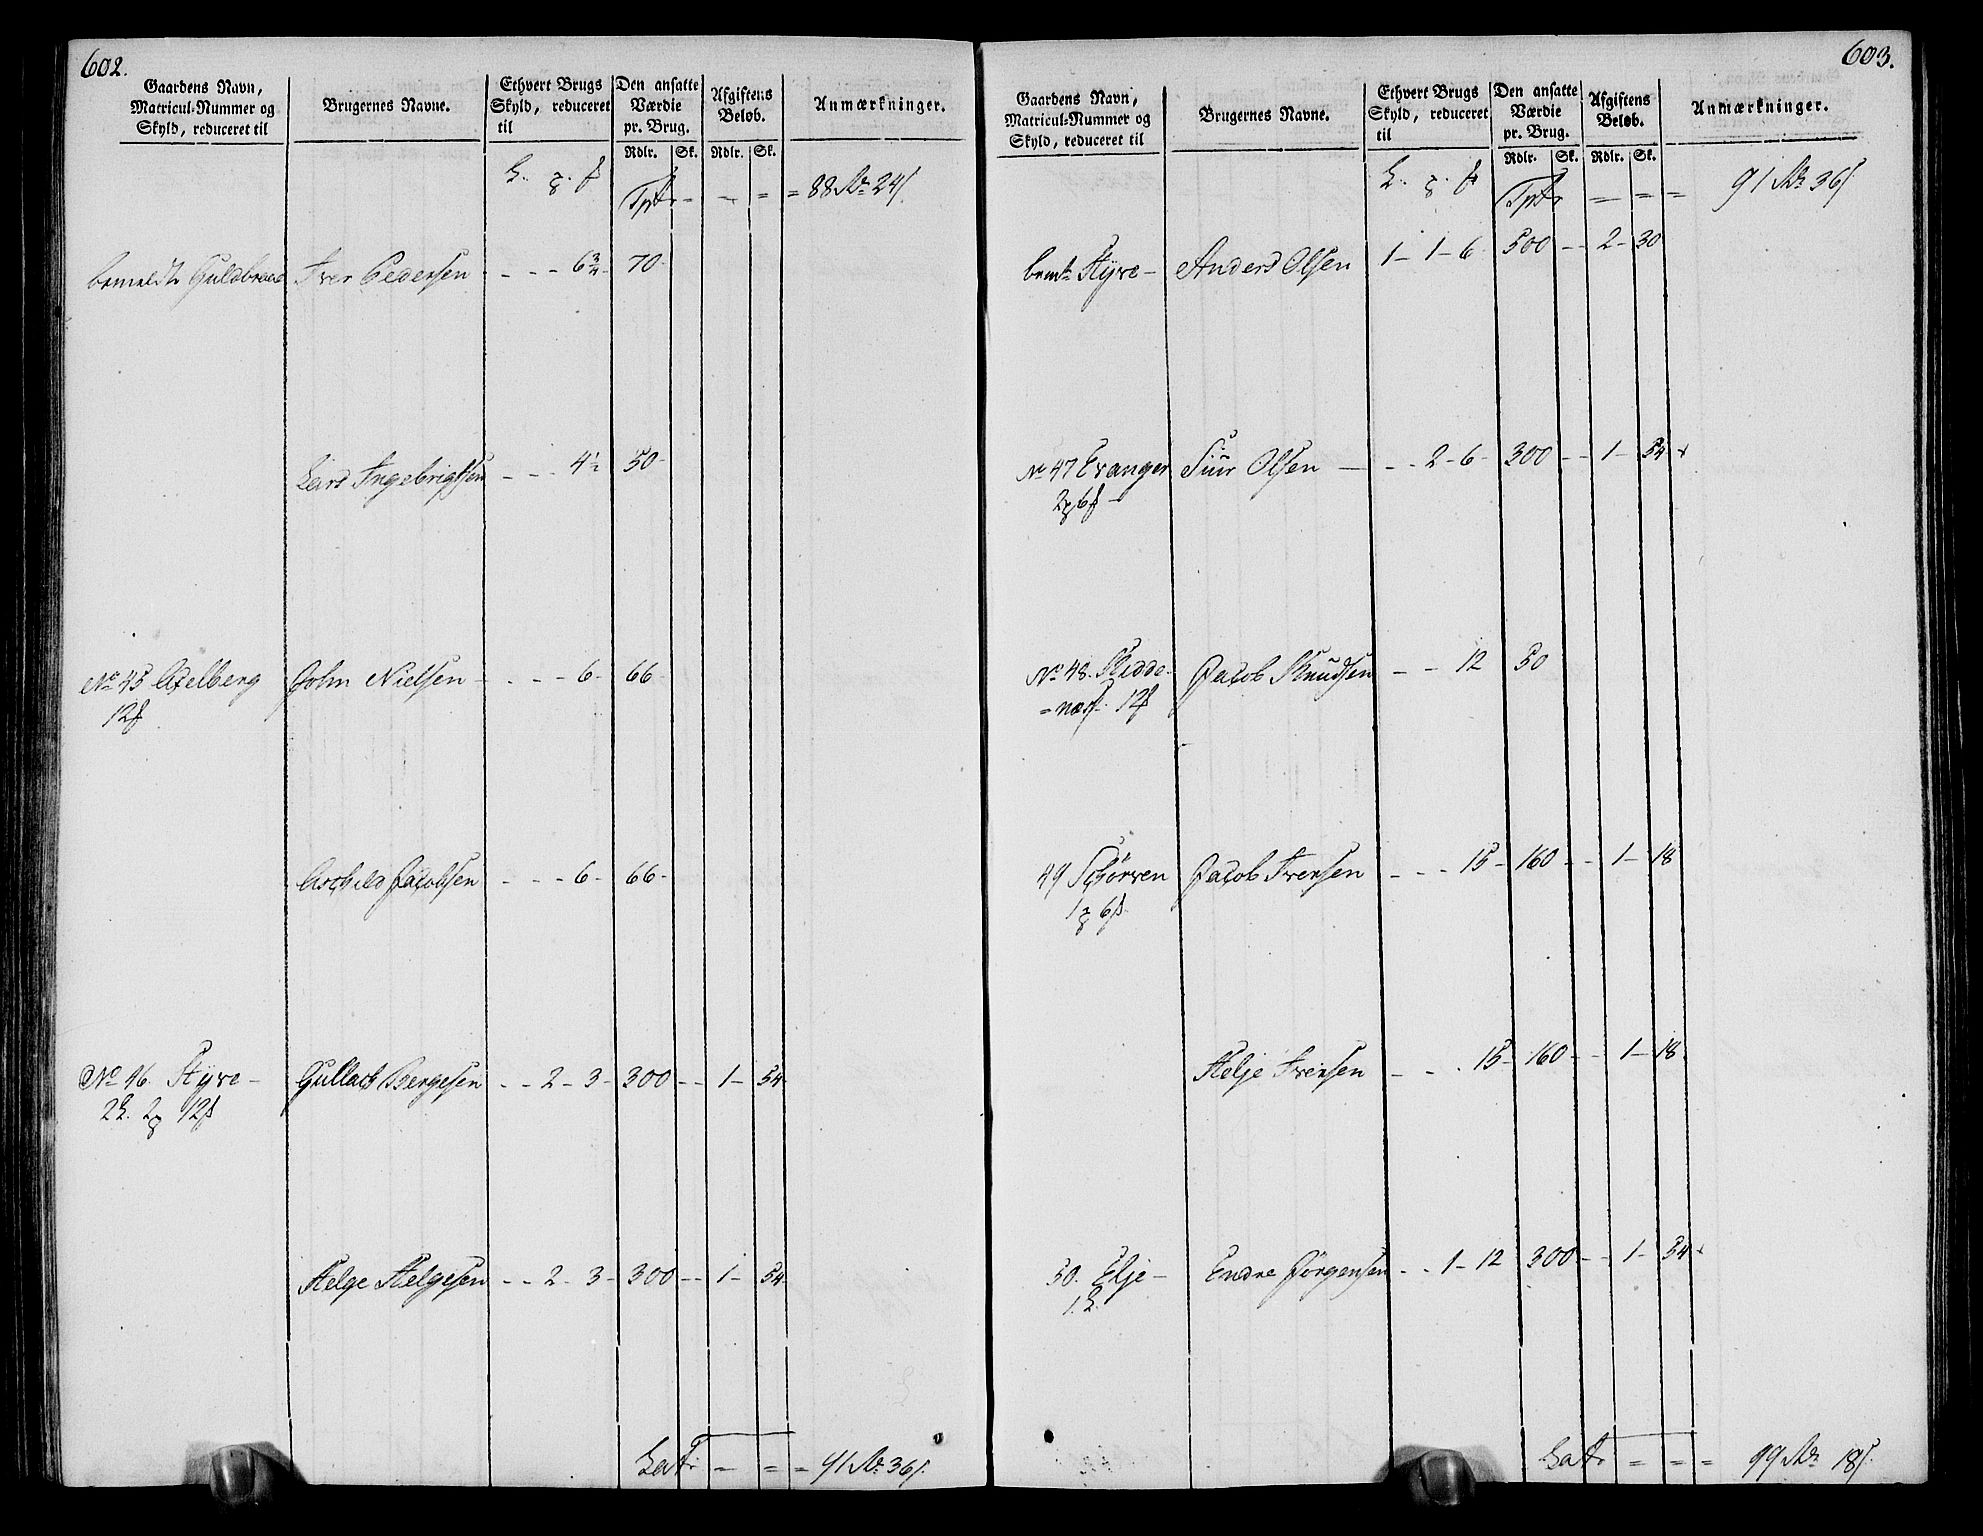 602.
Gaardens Navn,
Matricul-Nummer og
Skyld, reduceret til
Brugernes Navne.
Ethvert Brugs
Skyld, reduceret
til
Den ansatte
Værdie
pr. Brug.
Afgiftens
Beløb.
Anmærkninger.
Rdlr. Sk. Rdlr. Sk.
L. = = = 88 24
bemeldte Guldbrae Iver Pedersen - - - 6 3/4 - 70 -
Lars Ingebrigtsen - - - 4 1/2 50 -
No 45 Axelberg John Nielsen - - - - 6 - 66 -
12
Aschild Jacobsen - - - 6 - 66 -
No 46. Styve - Gullach Bergesen - - 2 - 3 - 300 - - 1 - 54
2 L. 2 12
Helge Helgesen - - 2 - 3 - 300 - - 1 - 54
Lat = = = 91 36
603.
Gaardens Navn,
Matricul-Nummer og
Skyld, reduceret til
Brugernes Navne.
Ethvert Brugs
Skyld, reduceret
til
Den ansatte
Værdie
pr. Brug.
Afgiftens
Beløb.
Anmærkninger.
Rdlr. Sk. Rdlr. Sk.
L. = = = 91 36
bemte Styve - Anders Olsen 1 - 1 - 6 - 500 - - 2 - 30
No 47 Evanger Siur Olsen - - - 2 - 6 - 300 - - 1 - 54
2 6 -
No 48. Skidde- Jacob Knudsen - - 12 50
= næs 12
49 Schørven Jacob Iversen - - - 15 - 160 - - 1 - 18
1 6
Helje Iversen - - . 15 - 160 - - 1 - 18
50. Elje - Endre Jörgensen - - 1 - 12 300 - - 1 - 54
1. L.
Lat = = = 99 18